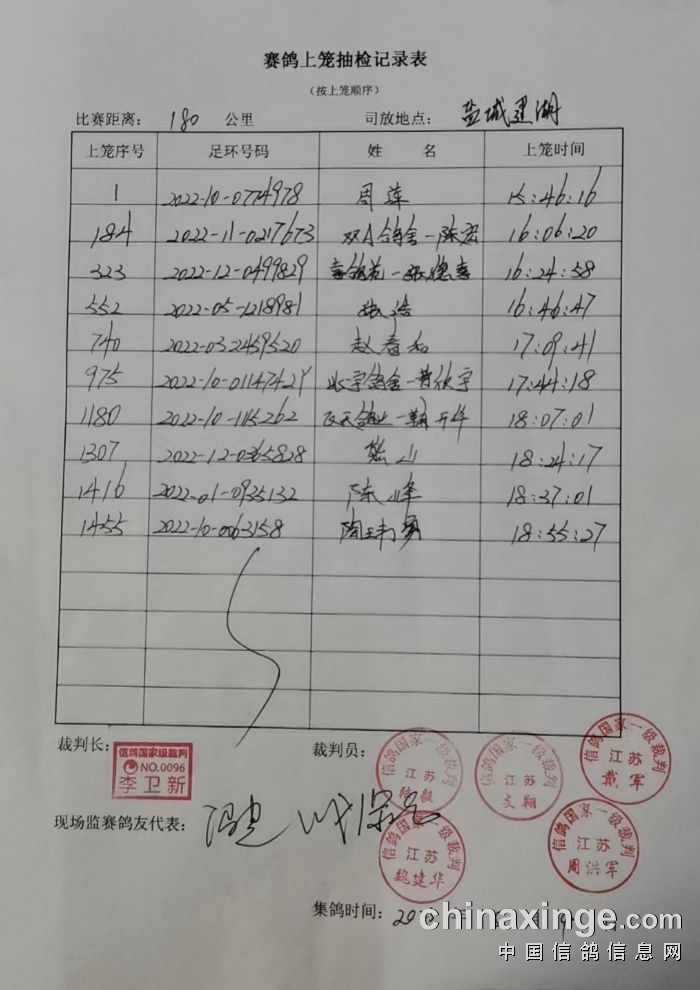 赛鸽上笼抽检记录表
（按上笼顺序）
比赛距离： 180 公里 司放地点： 盐城建湖
上笼序号 足环号码 姓 名 上笼时间
1 2022-10-0774978 周萍 15:46:16
184 2022-11-0217673 双A鸽舍-陈宏 16:06:20
323 2022-12-0499829 16:24:58
552 2022-05-1218981 张浩 16:46:47
740 2022-032459520 赵春和 17:09:41
975 17:44:18
1180 2022-10-1115262 18:07:01
1307 2022-12-0365828 熊山 18:24:17
1416 2022-01-0935132 陈峰 18:37:01
1455 2022-10-0063158 18:55:27
裁判长： 裁判员：
信鸽国家级裁判
NO.0096
李卫新
信鸽国家一级裁判 江苏 陆毅
信鸽国家一级裁判 江苏
信鸽国家一级裁判 江苏 戴军
现场监赛鸽友代表：
信鸽国家一级裁判 江苏 魏建华
信鸽国家一级裁判 江苏 周洪军
集鸽时间： 20
chinaxinge.com
中国信鸽信息网